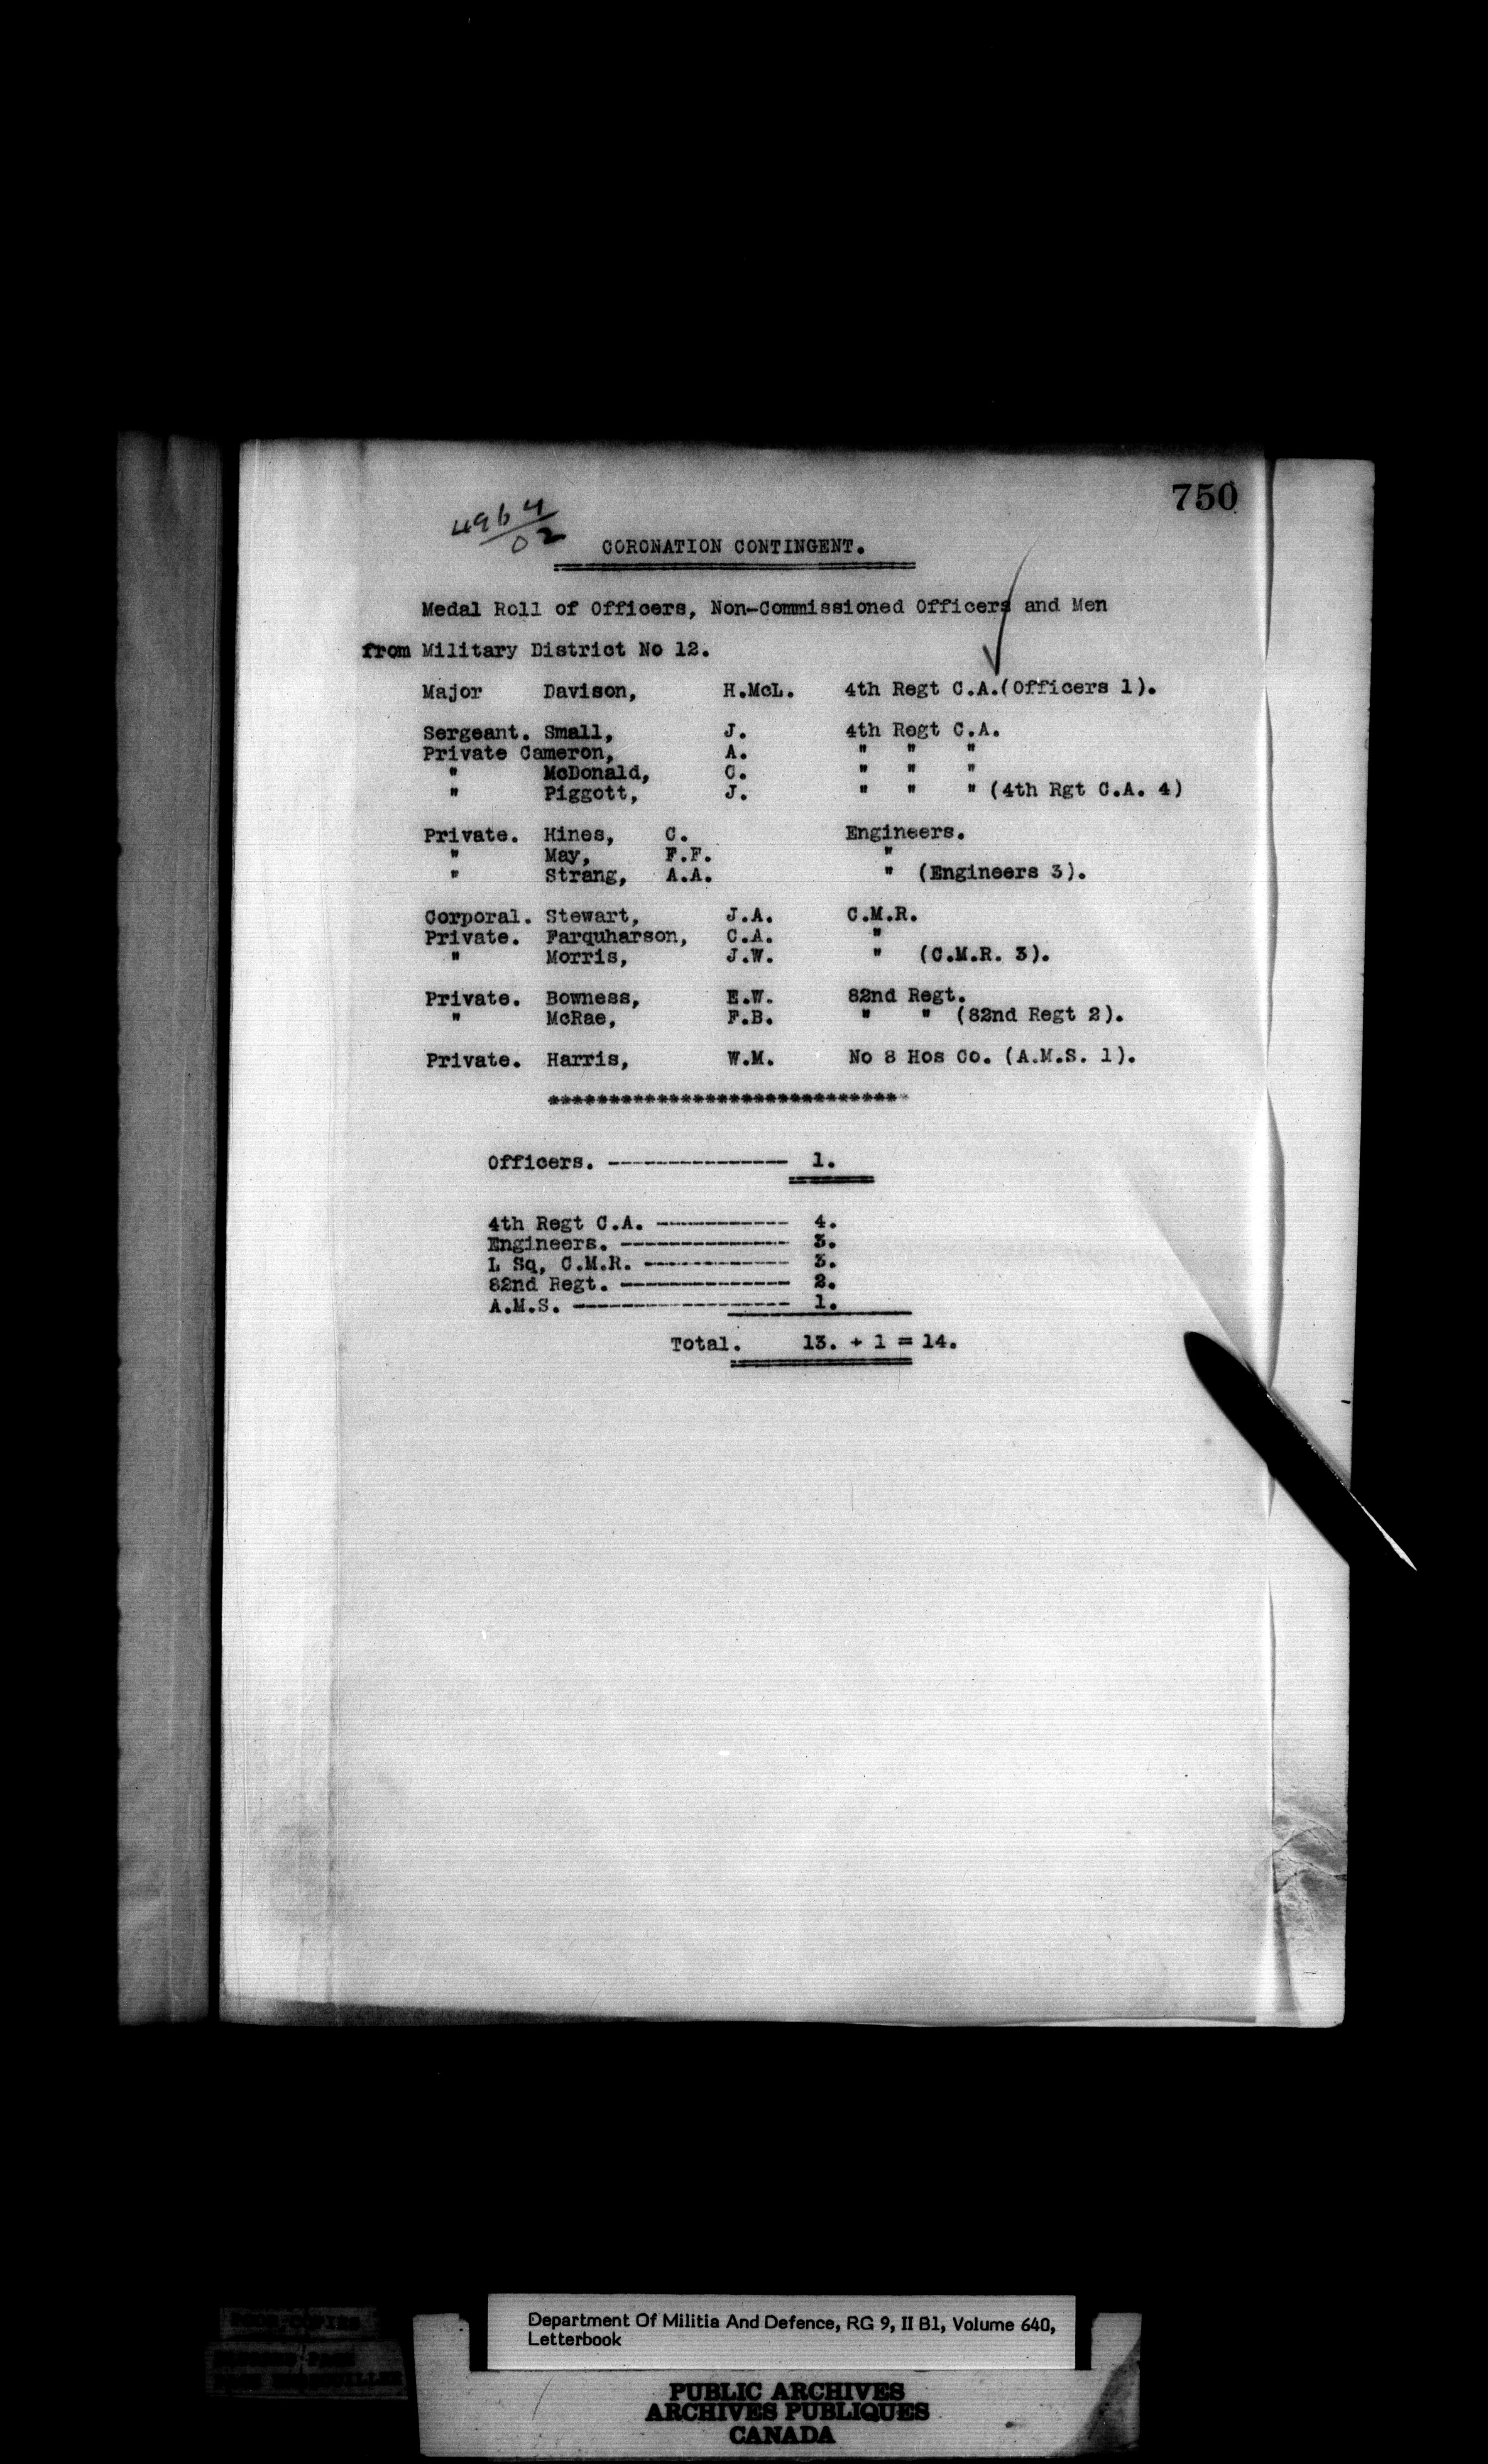 750
4964/02
CORONATION CONTINGENT.
Medal Roll of Officers, Non-Commissioned Officers and Men
from Military District No 12.
Major Davison, H.McL. 4th Regt C.A.(Officers 1).
Sergeant. Small, J. 4th Regt C.A.
Private Cameron, A. " " "
" McDonald, C. " " "
" Piggott, J. " " " (4th Rgt C.A. 4)
Private. Hines, C. Engineers.
" May, F.F. "
" Strang, A.A. " (Engineers 3).
Corporal. Stewart, J.A. C.M.R.
Private. Farquharson, C.A. "
" Morris, J.W. " (C.M.R. 3).
Private. Bowness, E.W. 82nd Regt.
" McRae, F.B. " " (82nd Regt 2).
Private. Harris, W.M. No 8 Hos Co. (A.M.S. 1).
*****************************
Officers. --------------- 1.
4th Regt C.A. ----------- 4.
Engineers. -------------- 3.
L Sq, C.M.R. ------------ 3.
82nd Regt. -------------- 2.
A.M.S. ------------------ 1.
Total. 13. + 1 = 14.
Department Of Militia And Defence, RG 9, II B1, Volume 640,
Letterbook
PUBLIC ARCHIVES
ARCHIVES PUBLIQUES
CANADA